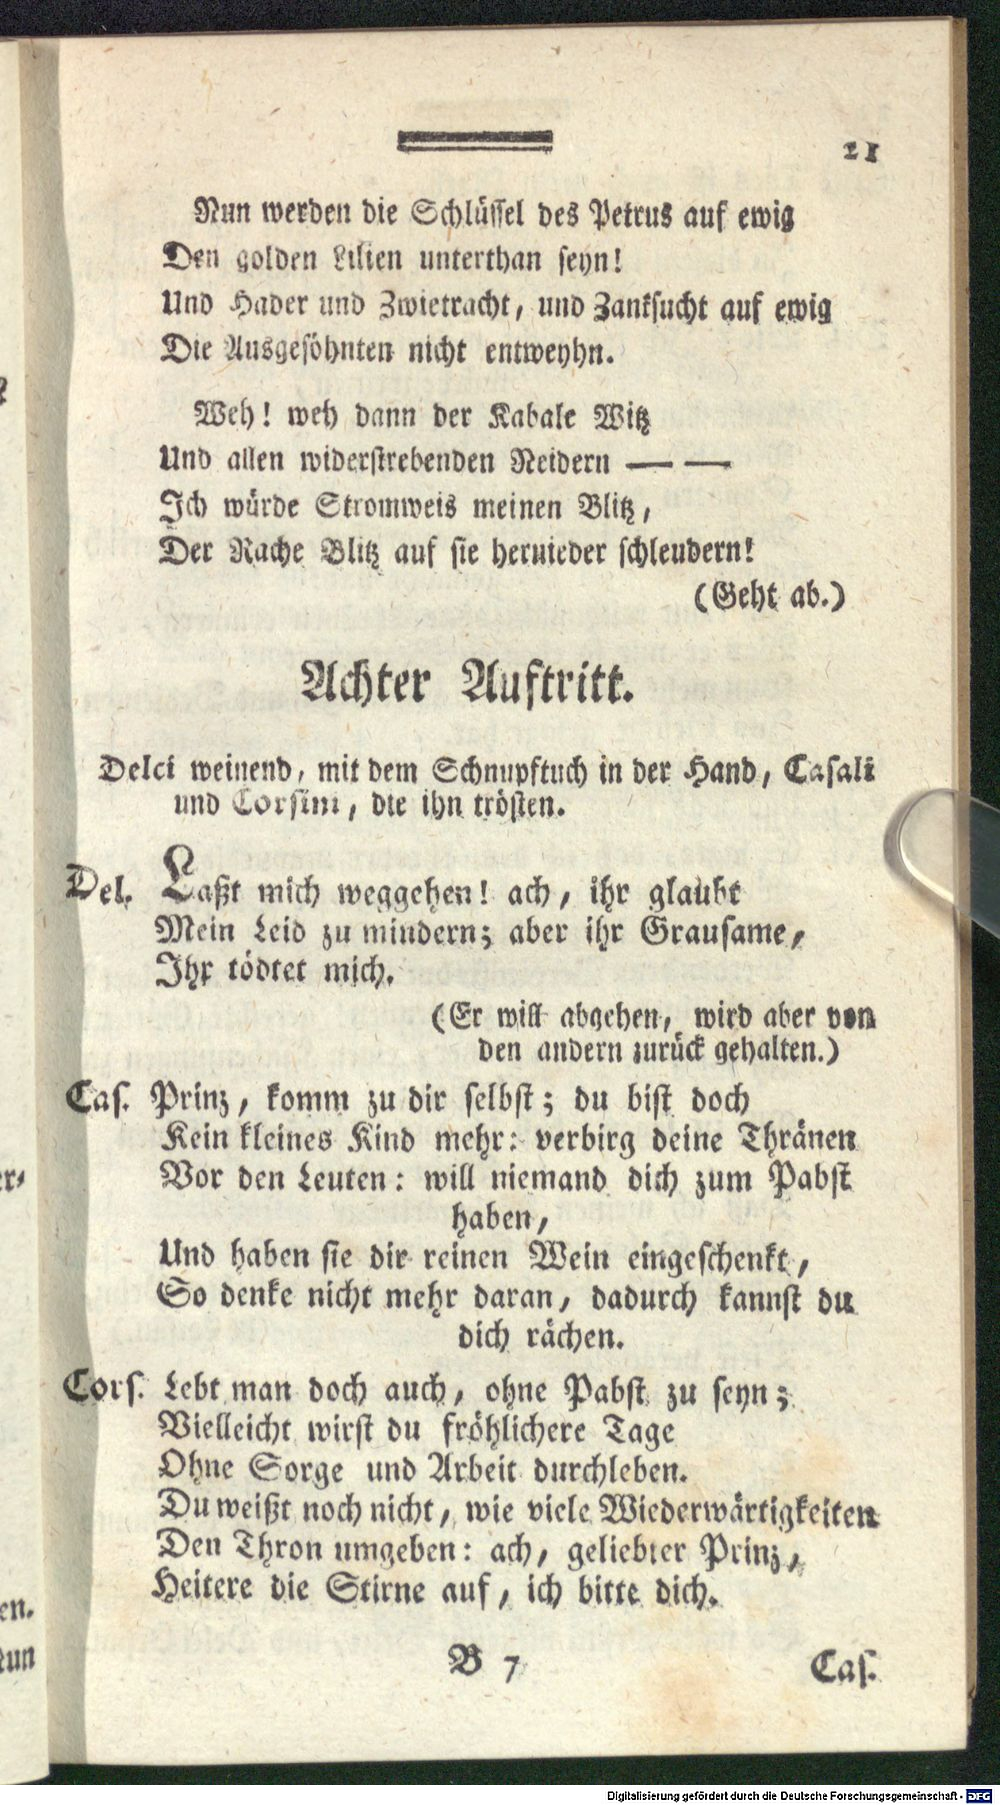 21
Nun werden die Schlüssel des Petrus auf ewig
Den golden Lilien unterthan seyn!
Und Hader und Zwietracht, und Zanksucht auf ewig
Die Ausgesöhnten nicht entweyhn.
Weh! weh dann der Kabale Witz
Und allen widerstrebenden Neidern — —
Ich würde Stromweis meinen Blitz,
Der Rache Blitz auf sie hernieder schleudern!
(Geht ab.)
Achter Auftritt.
Delci weinend, mit dem Schnupftuch in der Hand, Casali
und Corsini, die ihn trösten.
Del. Laßt mich weggehen! ach, ihr glaubt
Mein Leid zu mindern; aber ihr Grausame,
Ihr tödtet mich.
(Er will abgehen, wird aber von
den andern zurück gehalten.)
Cas. Prinz, komm zu dir selbst; du bist doch
Kein kleines Kind mehr: verbirg deine Thränen
Vor den Leuten: will niemand dich zum Pabst
haben,
Und haben sie dir reinen Wein eingeschenkt,
So denke nicht mehr daran, dadurch kannst du
dich rächen.
Cors. Lebt man doch auch, ohne Pabst zu seyn;
Vielleicht wirst du fröhlichere Tage
Ohne Sorge und Arbeit durchleben.
Du weißt noch nicht, wie viele Wiederwärtigkeiten
Den Thron umgeben: ach, geliebter Prinz,
Heitere die Stirne auf, ich bitte dich.
B 7
Cas.
er-
en.
Digitalisierung gefördert durch die Deutsche Forschungsgemeinschaft - DFG